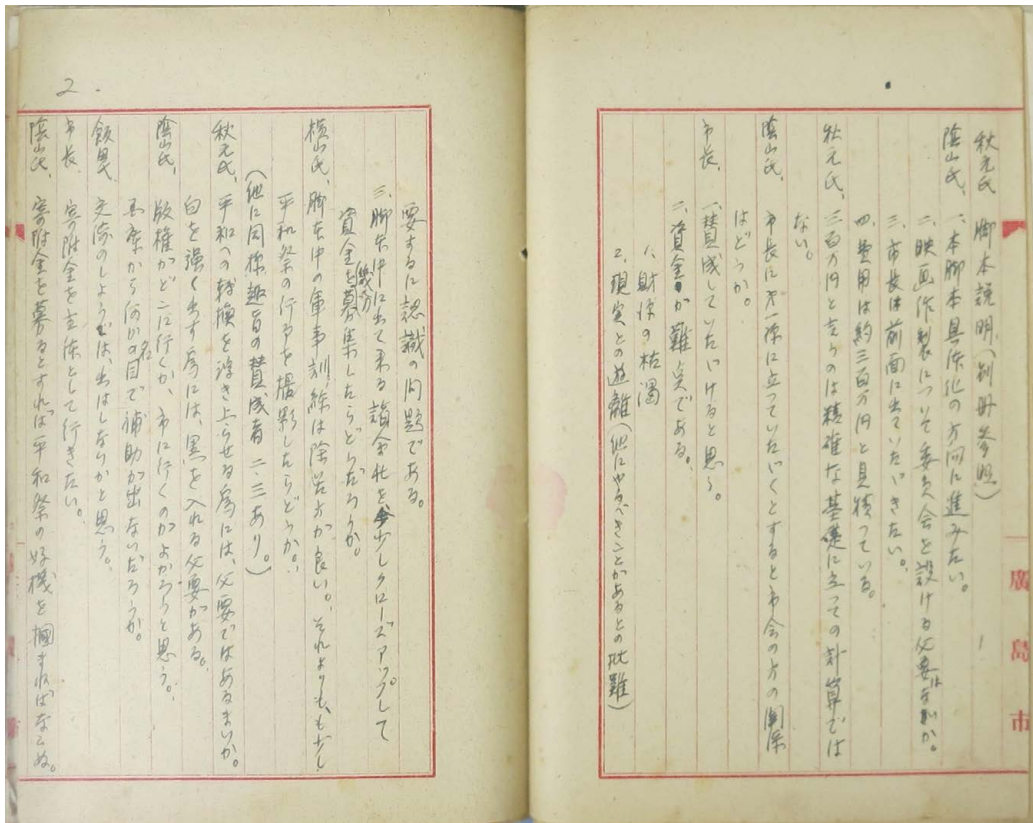 1
秋元氏 脚本説明、(別冊参照)
陰山氏、一、本脚本具体化の方向に進みたい。
二、映画作製について委員会を設ける必要はなきか。
三、市長は前面に出ていたゞきたい。
四、費用は約三百万円と見積っている。
秋元氏、三百万円と云うのは精確な基礎に立っての計算では
ない。
陰山氏、市長に第一線に立っていたゞくとすると市会の方の関係
はどうか。
市長、一、賛成していたゞけると思う。
二、資金が難点である。
1、財源の枯渇
2、現実との遊離(他にやるべきことがあるとの批難)
廣島市
2.
要するに認識の問題である。
三、脚本中に出て来る諸会社を少しクローズアップして
資金を幾分募集したらどうだろうか。
横山氏、脚本中の軍事訓練は除いた方が良い。それよりも、も少し
平和祭の行事を撮影したらどうか。
(他に同様趣旨の賛成者二、三あり。)
秋元氏、平和への転換を浮き上らせる為には、必要ではあるまいか。
白を強く出す為には、黒を入れる必要がある。
陰山氏、版権がどこに行くか、市に行くのがよかろうと思う。
県庁から何かの名目で補助が出ないだろうか。
飯男、交渉のしようでは、出はしないかと思う。
市長、寄附金を主体として行きたい。
陰山氏、寄附金を募るとすれば平和祭の好機を掴まねばならぬ。